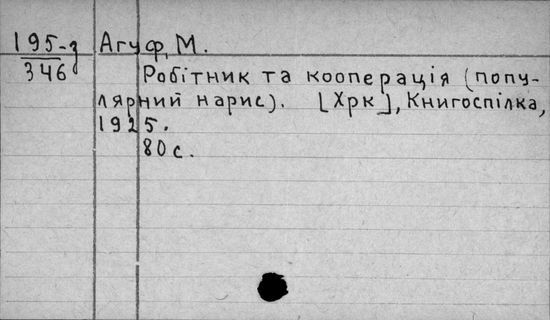 195-з Агуф, М.
346
Робітник та кооперація (попу-
лярний нарис). [Хрк], Книгоспілка,
1925.
80 с.